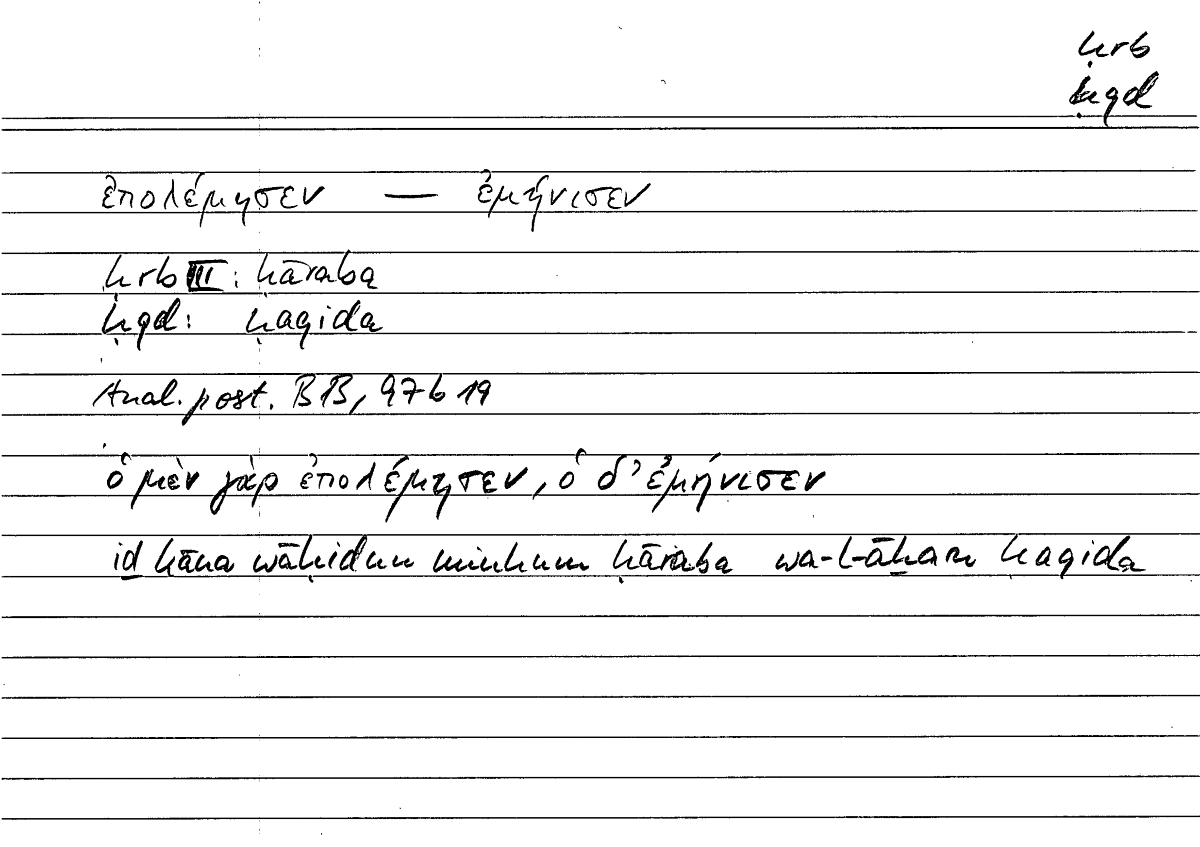 ḥrb
ḥqd
ἐπολέμησεν — ἐμήνισεν
ḥrb III: ḥāraba
ḥqd: ḥaqida
Anal. post. B 13, 97 b 19
ὁ μὲν γὰρ ἐπολέμησεν, ὁ δ' ἐμήνισεν
iḏ kāna wāḥidun minhum ḥāraba wa-l-āḫaru ḥaqida